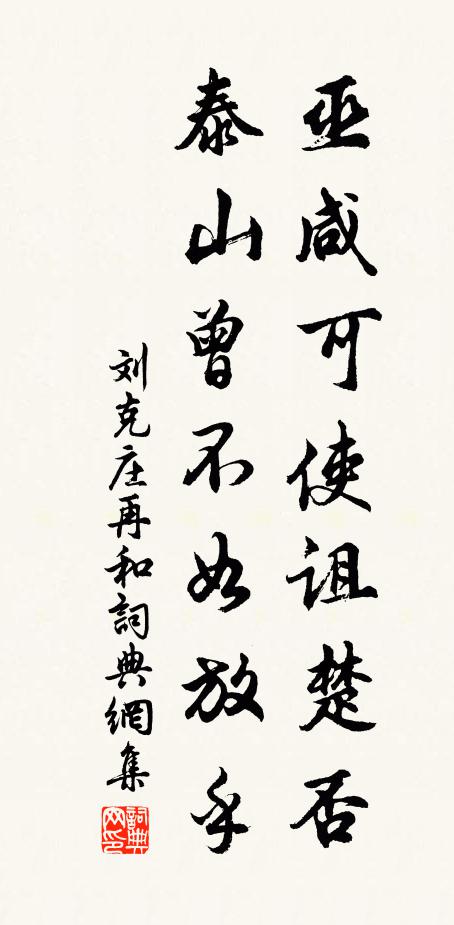 巫咸可使詛楚否
泰山曾不如放乎
刘克庄再和詞典網集
詞典网印